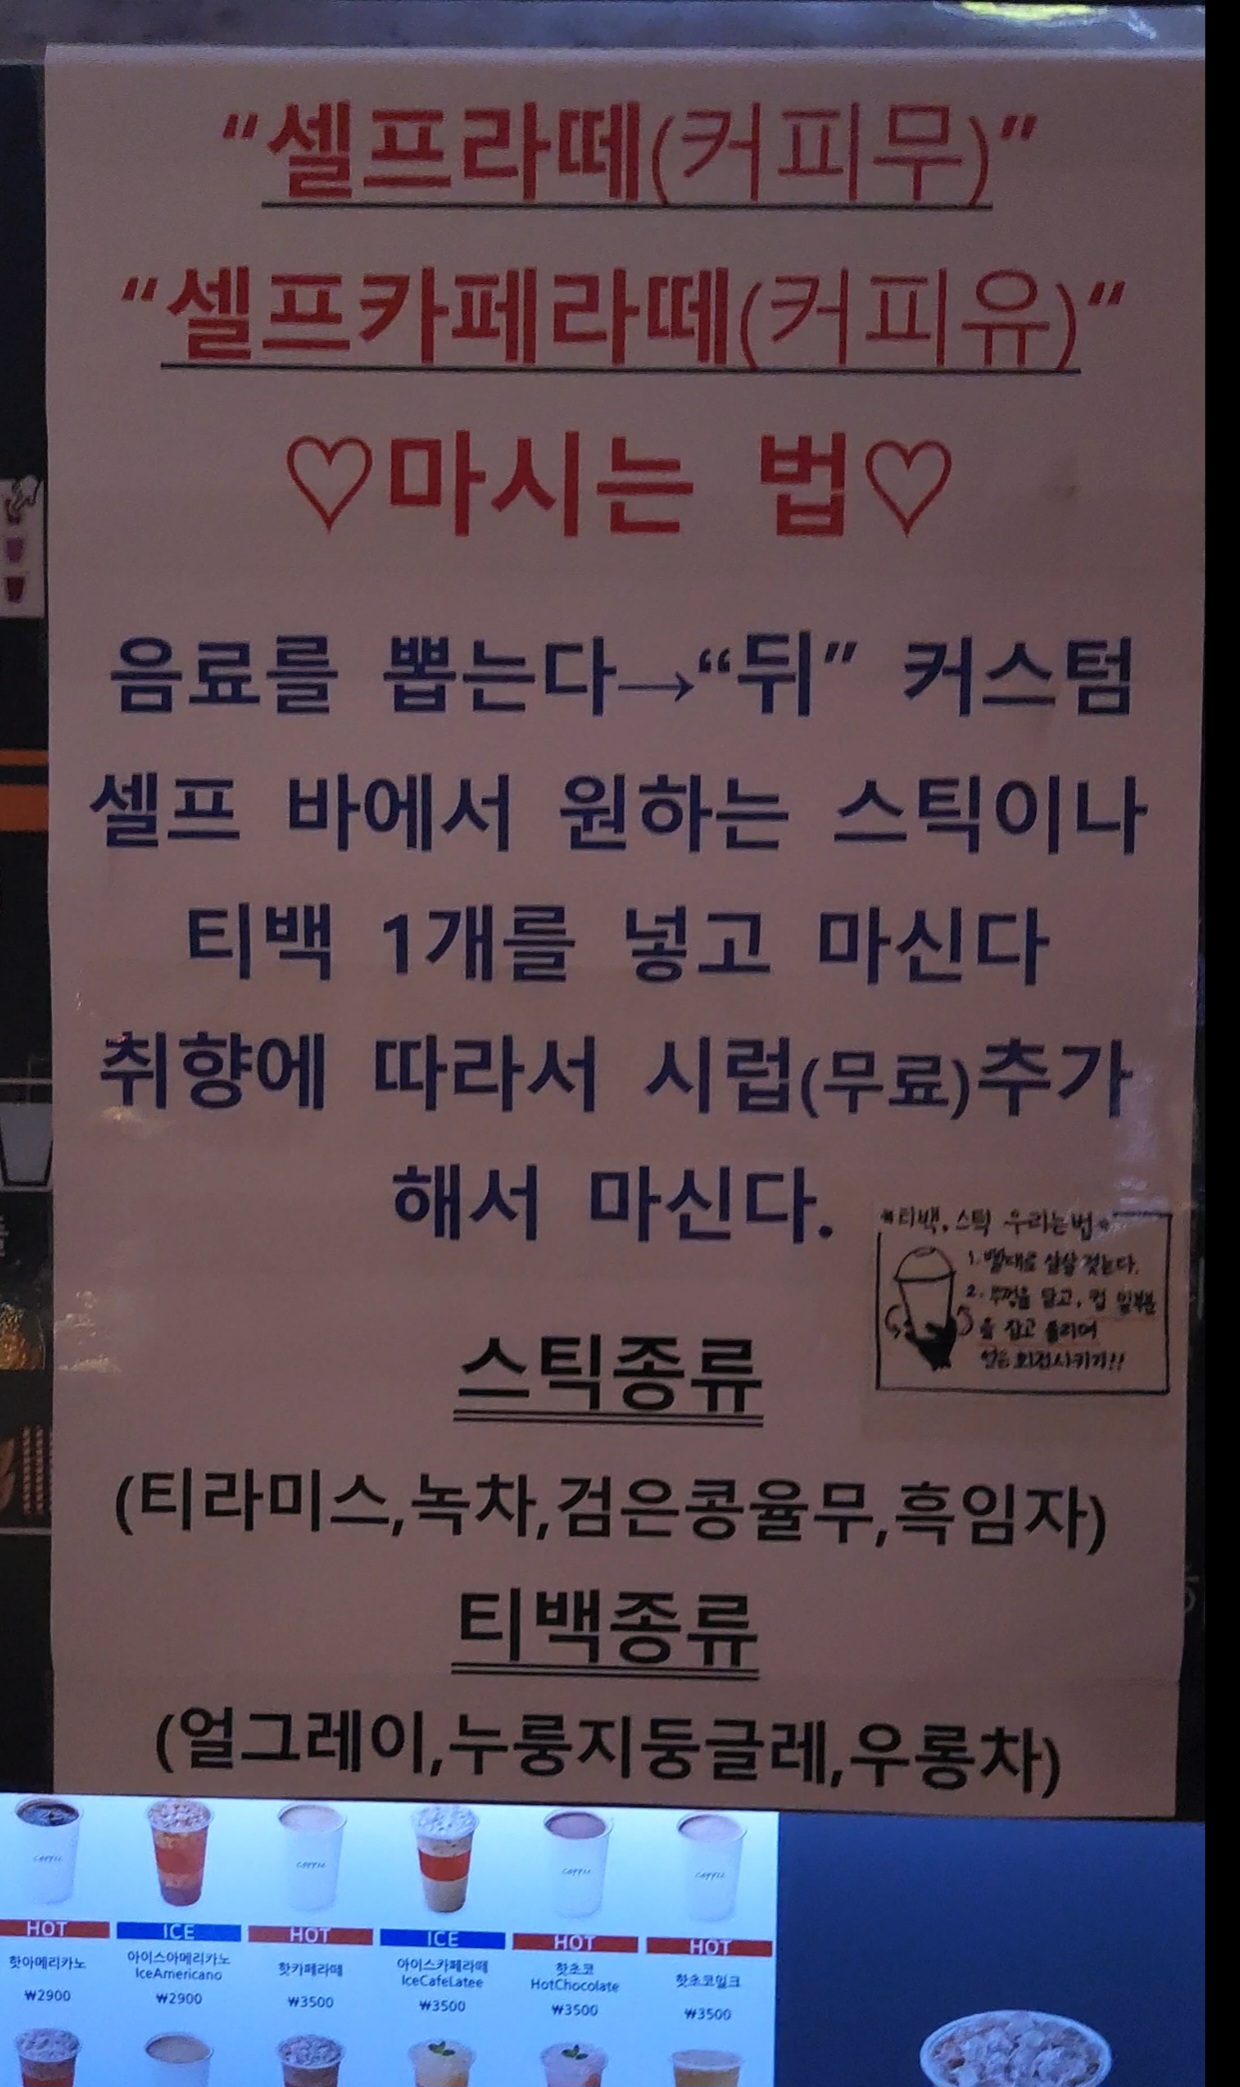 “셀프라떼(커피무)”
“셀프카페라떼(커피유)“
♡마시는 법♡
음료를 뽑는다→“뒤” 커스텀
셀프 바에서 원하는 스틱이나
티백 1개를 넣고 마신다
취향에 따라서 시럽(무료)추가
해서 마신다.
*티백, 스틱 우리는법*
1. 빨대로 살살 젓는다.
2. 뚜껑을 닫고, 컵 밑부분
을 잡고 돌리며
얼음 회전시키기!!
스틱종류
(티라미스,녹차,검은콩율무,흑임자)
티백종류
(얼그레이,누룽지둥글레,우롱차)
HOT ICE HOT ICE HOT HOT
핫아메리카노 아이스아메리카노 핫카페라떼 아이스카페라떼 핫초코 핫초코밀크
IceAmericano IceCafeLatee HotChocolate
₩2900 ₩2900 ₩3500 ₩3500 ₩3500 ₩3500